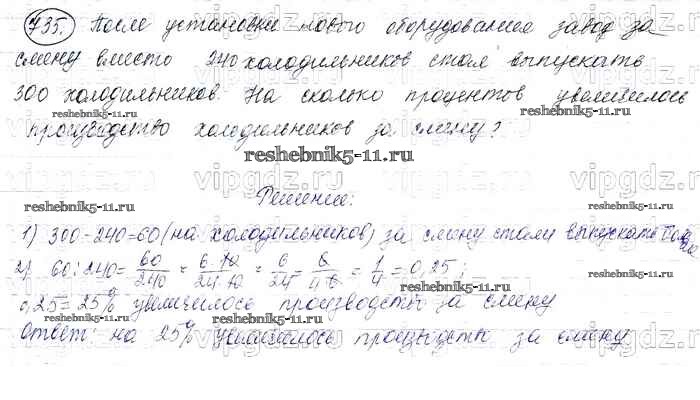 735. После установки нового оборудования завод за
смену вместо 240 холодильников стал выпускать
300 холодильников. На сколько процентов увеличилось
reshebnik5-11.ru reshebnik5-11.ru
производство холодильников за смену?
reshebnik5-11.ru
vipgdz.ru vipgdz.ru vipgdz.ru
Решение:
reshebnik5-11.ru reshebnik5-11.ru
1) 300-240=60 (на холодильников) за смену стали выпускать
2) 60:240= 60/240 = 6·10/24·10 = 6/24 = 6/4·6 = 1/4 = 0,25;
0,25=25% увеличилось производсты за смену
Ответ: на 25% увеличилось производсты за смену
reshebnik5-11.ru reshebnik5-11.ru